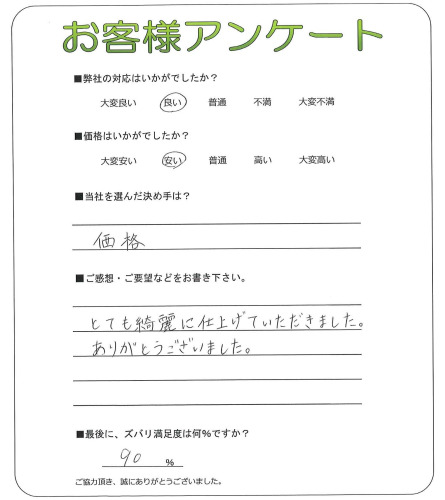 お客様アンケート
■弊社の対応はいかがでしたか?
大変良い 良い 普通 不満 大変不満
■価格はいかがでしたか?
大変安い 安い 普通 高い 大変高い
■当社を選んだ決め手は?
価格
■ご感想・ご要望などをお書き下さい。
とても綺麗に仕上げていただきました。
ありがとうございました。
■最後に、ズバリ満足度は何%ですか?
90 %
ご協力頂き、誠にありがとうございました。